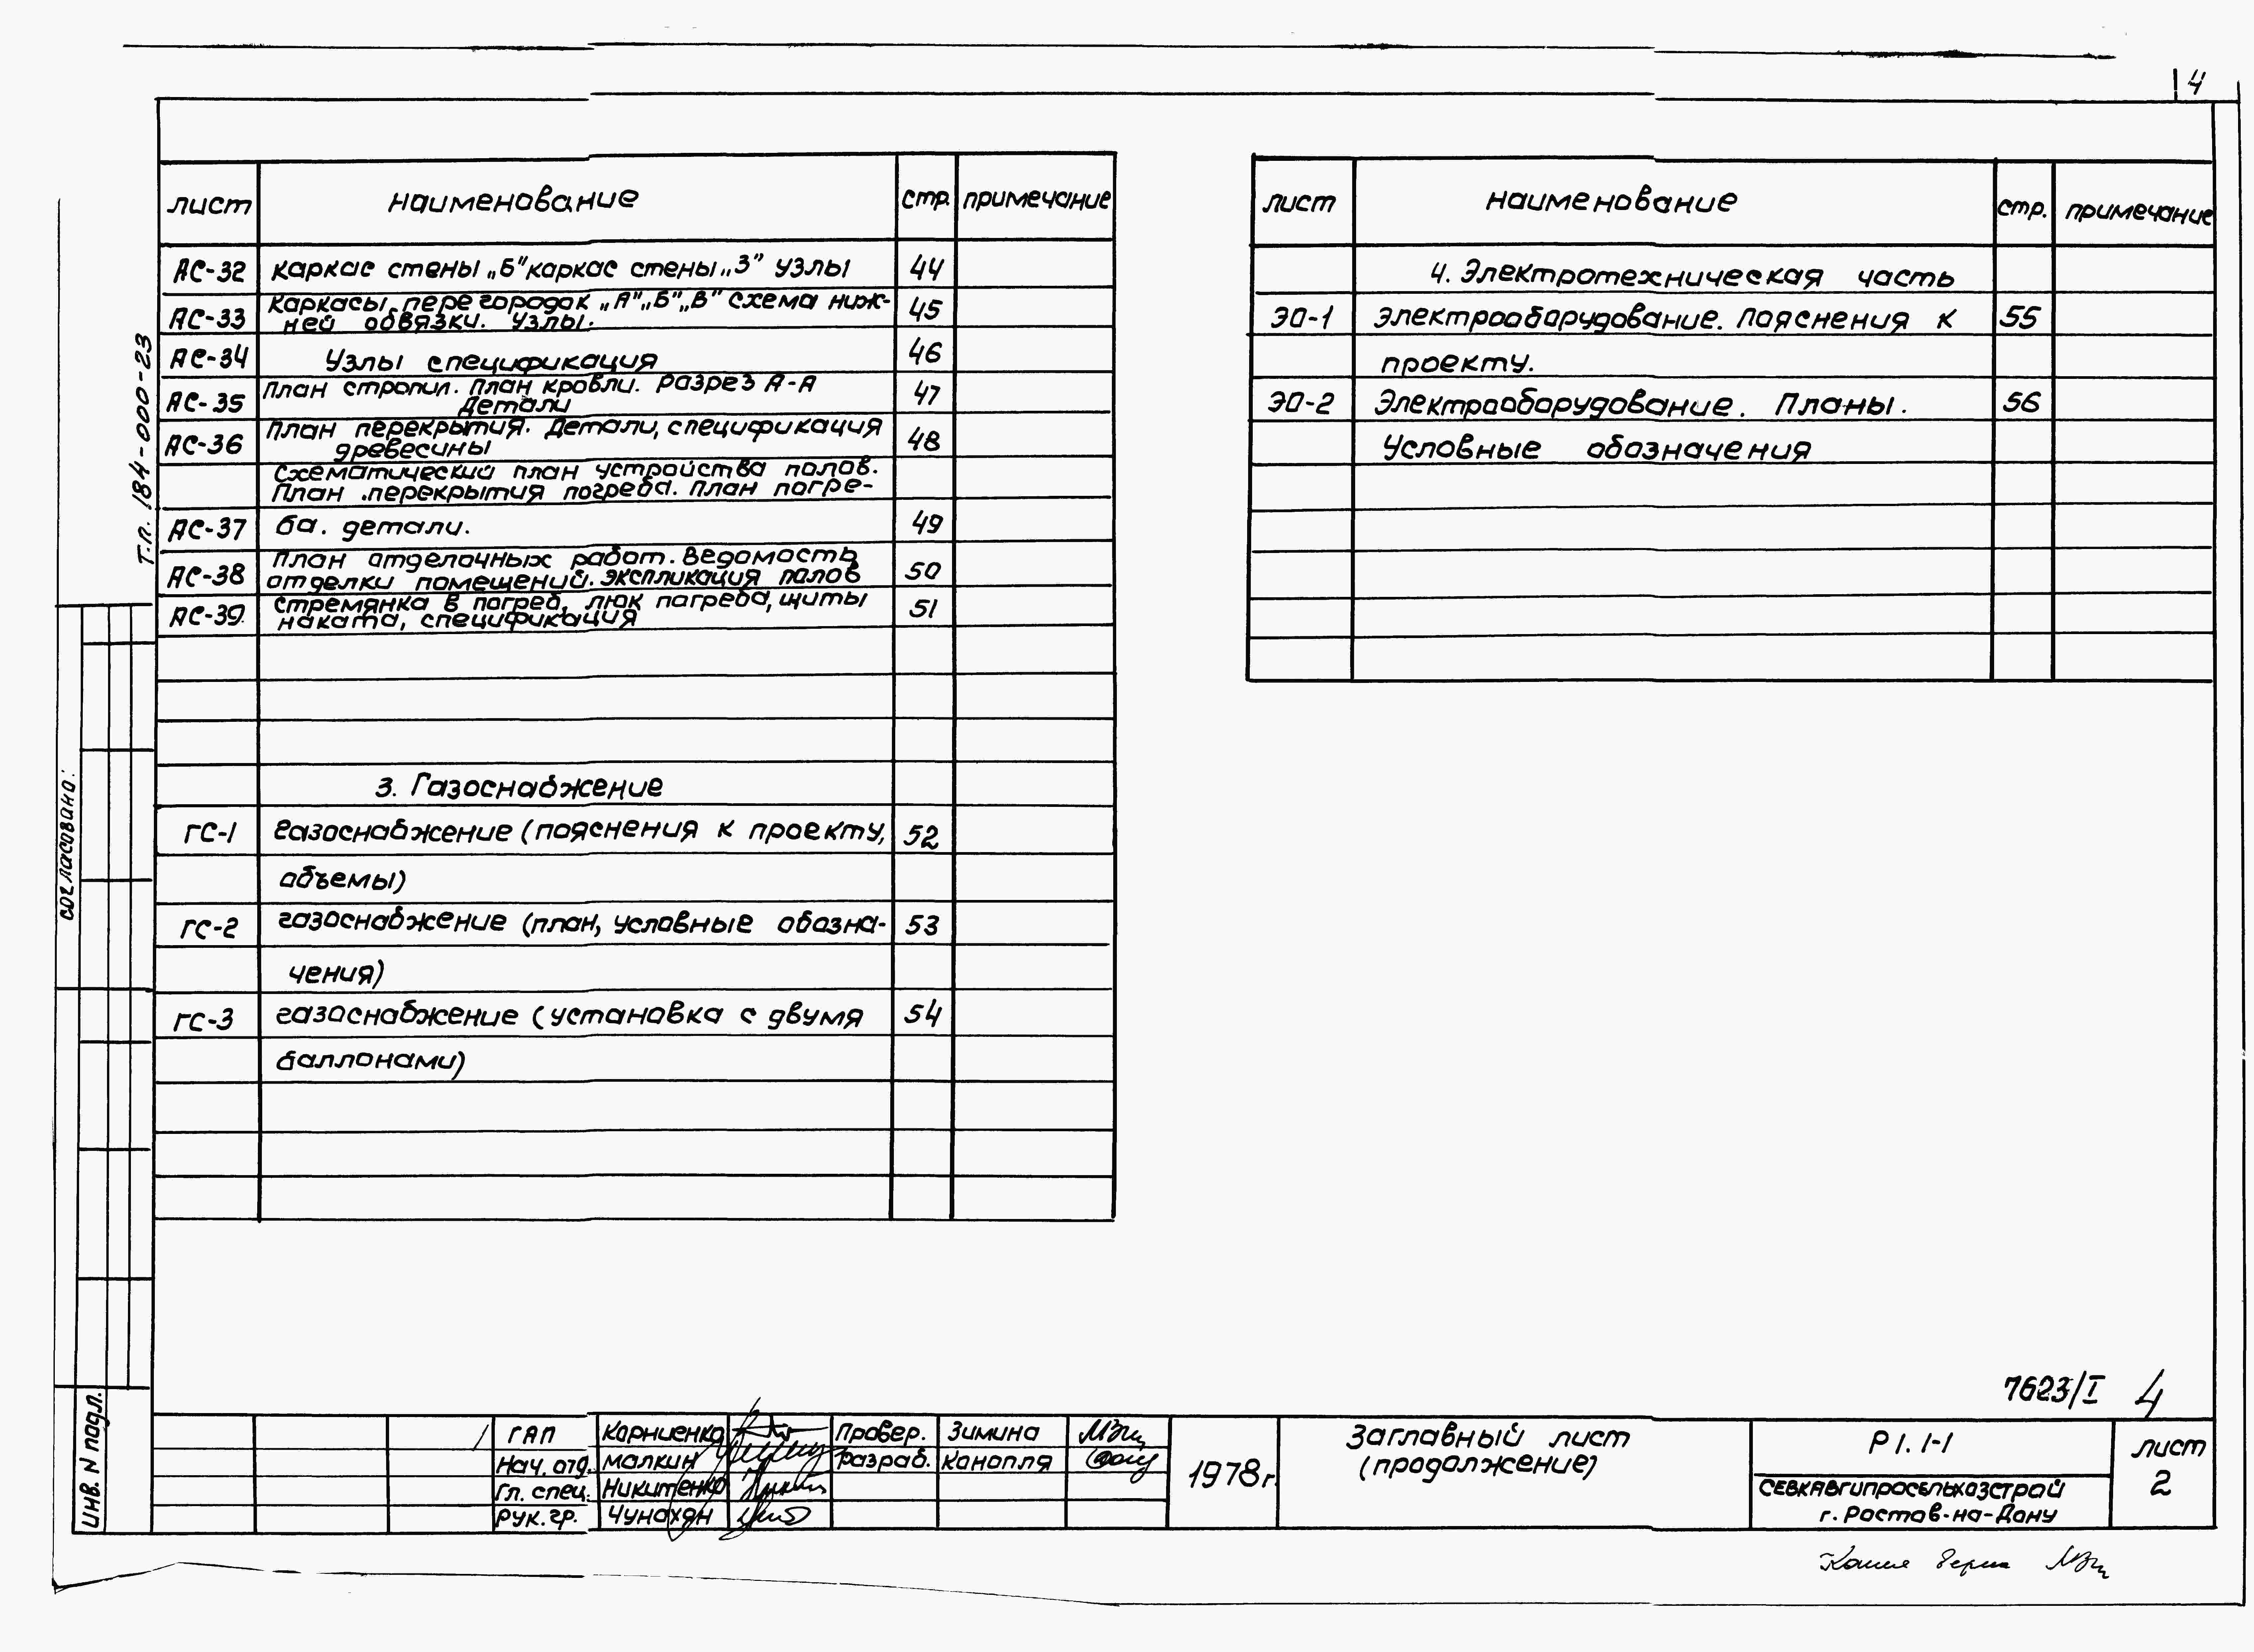 4
лист наименование стр. примечание
АС-32 каркас стены „Б" каркас стены „З" узлы 44
АС-33 каркасы перегородок „А" „Б" „В" схема ниж-
ней обвязки. узлы. 45
АС-34 Узлы спецификация 46
АС-35 План стропил. план кровли. разрез А-А
детали 47
АС-36 План перекрытия. детали, спецификация
древесины 48
Схематический план устройства полов.
План перекрытия погреба. план погре-
АС-37 ба. детали. 49
АС-38 План отделочных работ. Ведомость
отделки помещений. экспликация полов 50
АС-39. стремянка в погреб, люк погреба, щиты
наката, спецификация 51
3. Газоснабжение
ГС-1 газоснабжение (пояснения к проекту, 52
объемы)
ГС-2 газоснабжение (план, условные обозна- 53
чения)
ГС-3 газоснабжение (установка с двумя 54
баллонами)
лист наименование стр. примечание
4. Электротехническая часть
ЭО-1 Электрооборудование. Пояснения к 55
проекту.
ЭО-2 Электрооборудование. Планы. 56
Условные обозначения
Т.п. 184-000-23
согласовано:
ИНВ. N подл.
7623/I 4
ГАП Корниенко Провер. Зимина
Нач. отд. малкин разраб. Конопля
Гл. спец. Никитенко
рук. гр. Чунахян
1978г.
Заглавный лист
(продолжение)
Р I. 1-1
СЕВКАВГИПРОСЕЛЬХОЗСТРОЙ
г. Ростов-на-Дону
лист
2